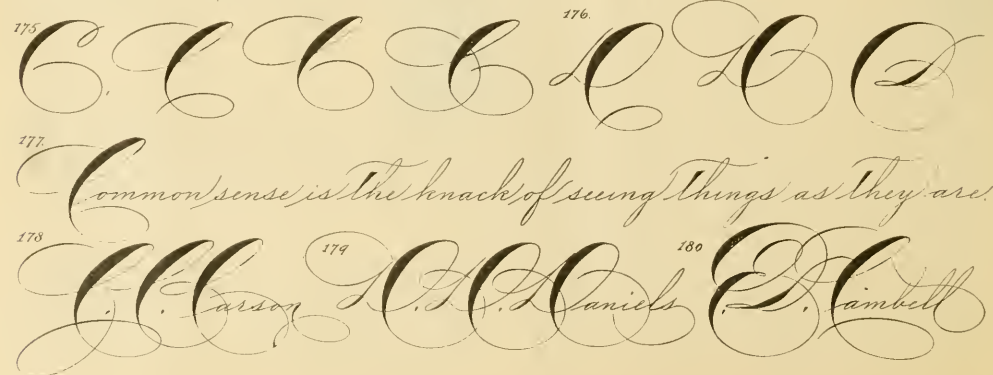 175 C C C C 176. D D D
177. Common sense is the knack of seeing things as they are.
178 C. C. Carson 179 D. D. Daniels 180 E. D. Cambell